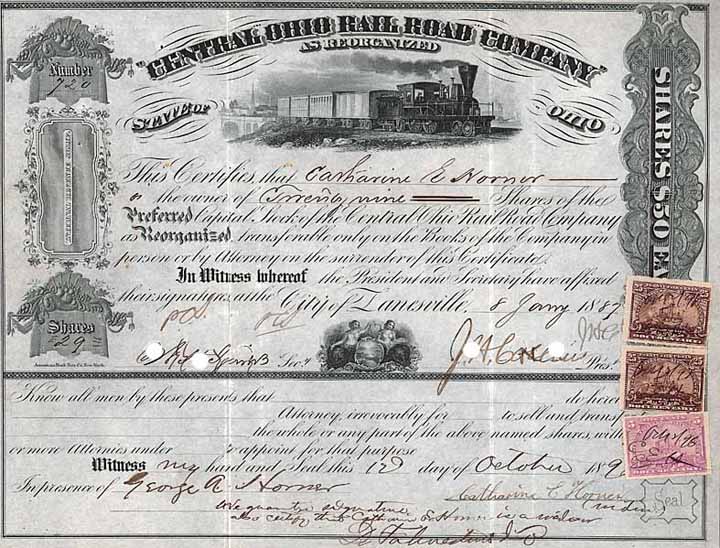 CENTRAL OHIO RAIL ROAD COMPANY
AS REORGANIZED
STATE OF OHIO
Number
720
SHARES $50 EA
This Certifies that Catharine E Horner
is the owner of Twenty nine Shares of the
Preferred Capital Stock of the Central Ohio Rail Road Company
as Reorganized, transferable only on the Books of the Company in
person or by Attorney on the surrender of this Certificate.
In Witness whereof the President and Secretary have affixed
their signatures, at the City of Zanesville, 8 Jany 1887
Shares
29
Secy
Prest
American Bank Note Co. New York.
Know all men by these presents that do here
Attorney, irrevocably for to sell and transf
the whole or any part of the above named shares, with
or more Attornies under to appoint for that purpose
Witness my hand and Seal this 12 day of October 189
In presence of George A Horner
Catharine E Horner
(widow)
Seal
We guarantee signature
also certify that Catharine E Horner is a widow
DOCUMENTARY